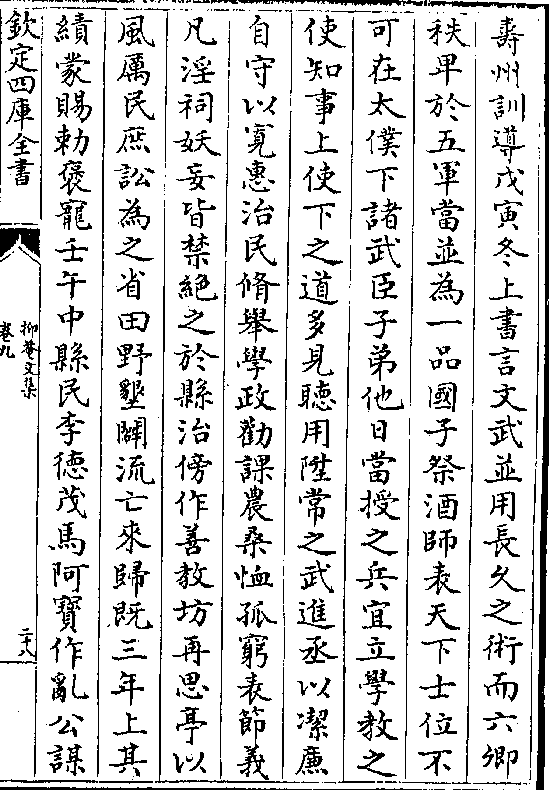 壽州訓導戊寅冬上書言文武並用長久之術而六卿
秩卑於五軍當並為一品國子祭酒師表天下士位不
可在太僕下諸武臣子弟他日當授之兵宜立學教之
使知事上使下之道多見聽用陞常之武進丞以潔廉
自守以寛惠治民脩舉學政勸課農桑恤孤窮表節義
凡淫祠妖妄皆禁絕之於縣治傍作善教坊再思亭以
風厲民庶訟為之省田野墾闢流亡來歸既三年上其
績蒙賜勅褒寵壬午中縣民李德茂馬阿寶作亂公謀
欽定四庫全書
抑菴文集
卷九
二十八